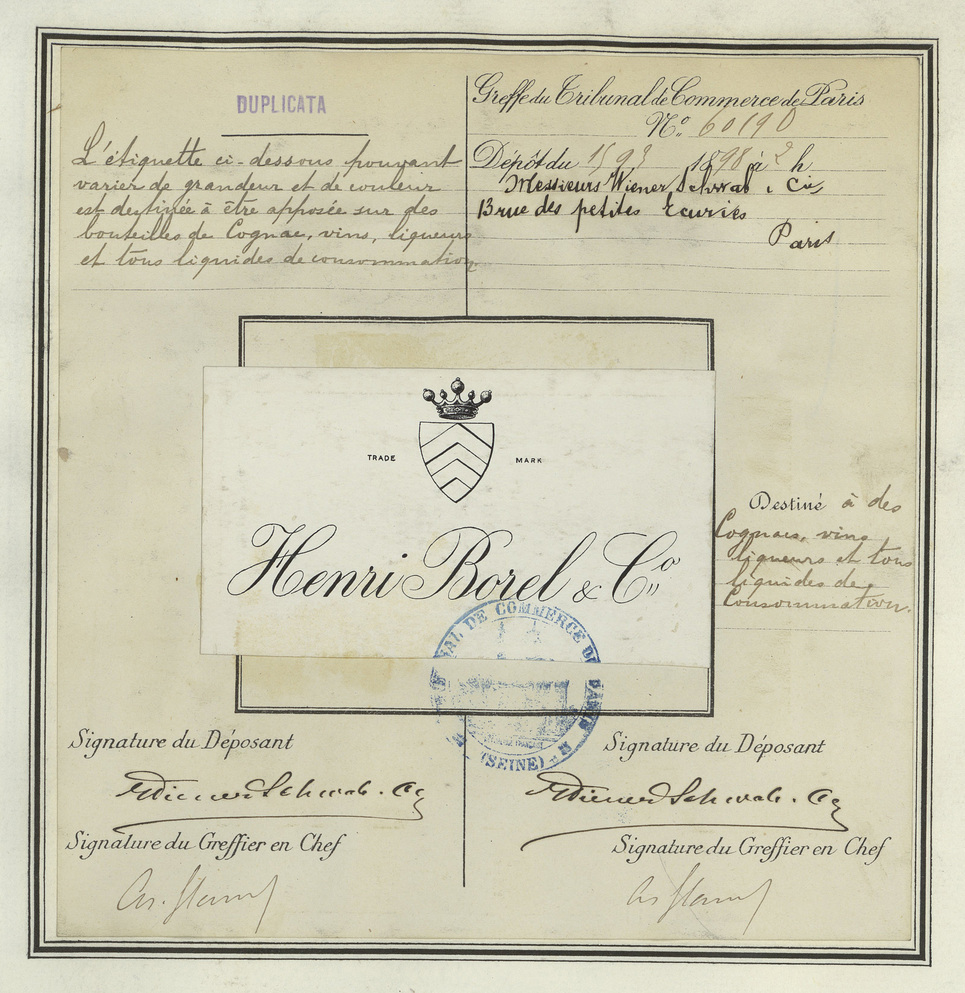 DUPLICATA
L'étiquette ci-dessous pouvant
varier de grandeur et de couleur
est destinée à être apposée sur des
bouteilles de Cognac, vins, liqueurs
et tous liquides de consommation
Greffe du Tribunal de Commerce de Paris
N.º 60190
Dépôt du 1898 à 2 h
Messieurs Wiener Schwab & Cie
13 rue des petites Ecuries
Paris
TRADE MARK
Henri Borel & Cº
Destiné à des
Cognacs, vins
liqueurs et tous
liquides de
Consommation.
TRIBUNAL DE COMMERCE DE PARIS
(SEINE)
Signature du Déposant
Wiener Schwab. Cie
Signature du Greffier en Chef
Signature du Déposant
Wiener Schwab. Cie
Signature du Greffier en Chef